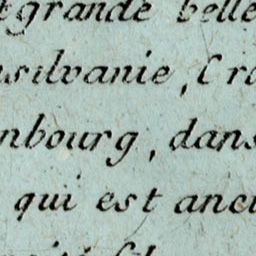 grande belle
nsilvanie, Cro
nbourg, dans
qui est anci